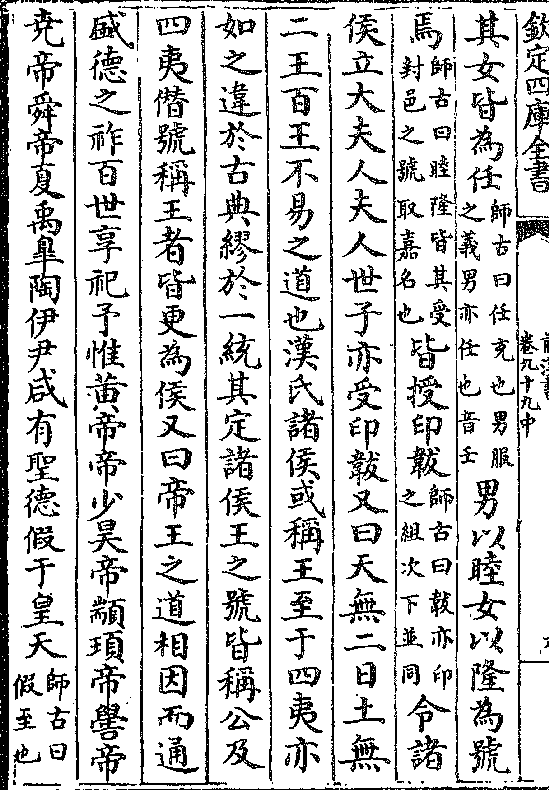 欽定四庫全書
卷九十九中
其女皆為任師古曰任充也男服之義男亦任也音壬男以睦女以隆為號
焉師古曰睦隆皆其受封邑之號取嘉名也皆授印韍師古曰韍亦印之組次下並同令諸
侯立大夫人夫人世子亦受印韍又曰天無二日土無
二王百王不易之道也漢氏諸侯或稱王至于四夷亦
如之違於古典繆於一統其定諸侯王之號皆稱公及
四夷僭號稱王者皆更為侯又曰帝王之道相因而通
盛德之祚百世享祀予惟黃帝帝少昊帝顓頊帝嚳帝
堯帝舜帝夏禹臯陶伊尹咸有聖德假于皇天師古曰假至也